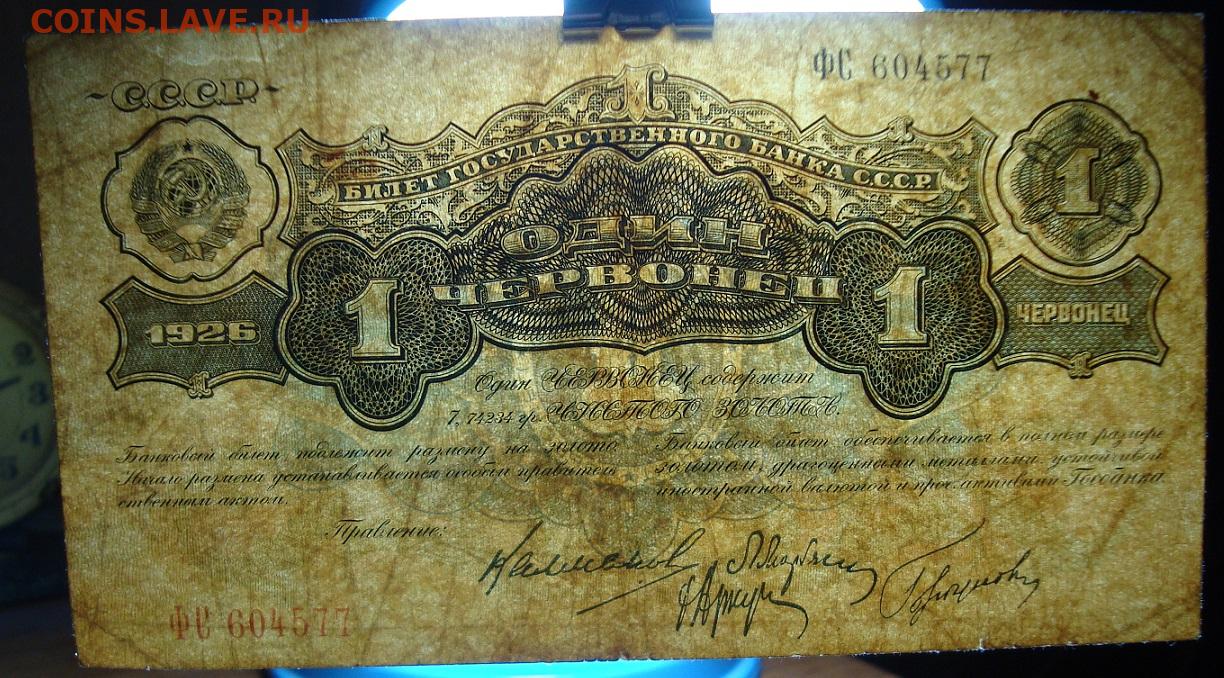 COINS.LAVE.RU
ФС 604577
С.С.С.Р.
1
БИЛЕТ ГОСУДАРСТВЕННОГО БАНКА С.С.С.Р.
1
ОДИН
ЧЕРВОНЕЦ
1
1
1926
ЧЕРВОНЕЦ
Один ЧЕРВОНЕЦ содержит
7,74234 гр. ЧИСТОГО ЗОЛОТА.
Банковый билет подлежит размену на золото.
Начало размена устанавливается особым правитель
ственным актом.
Банковый билет обеспечивается в полном размере
золотом, драгоценными металлами, устойчивой
иностранной валютой и проч. активами Госбанка.
Правление:
ФС 604577